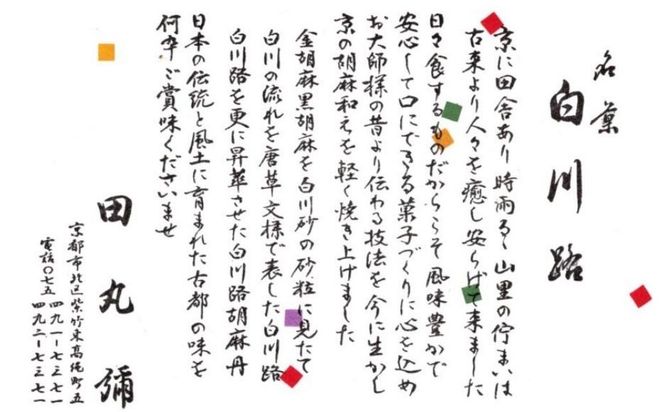 名菓
白川路
京に田舎あり 時雨るゝ山里の佇まいは
古来より人々を癒し安らげて来ました
日々食するものだからこそ風味豊かで
安心して口にできる菓子づくりに心を込め
お大師様の昔より伝わる技法を今に生かし
京の胡麻和えを軽く焼き上げました
金胡麻黒胡麻を白川砂の砂粒に見たて
白川の流れを唐草文様で表した白川路
白川路を更に昇華させた白川路胡麻丹
日本の伝統と風土に育まれた古都の味を
何卒ご賞味くださいませ
田丸彌
京都市北区紫竹東高縄町五
電話〇七五 四九一ー七三七一
四九二ー七三七一